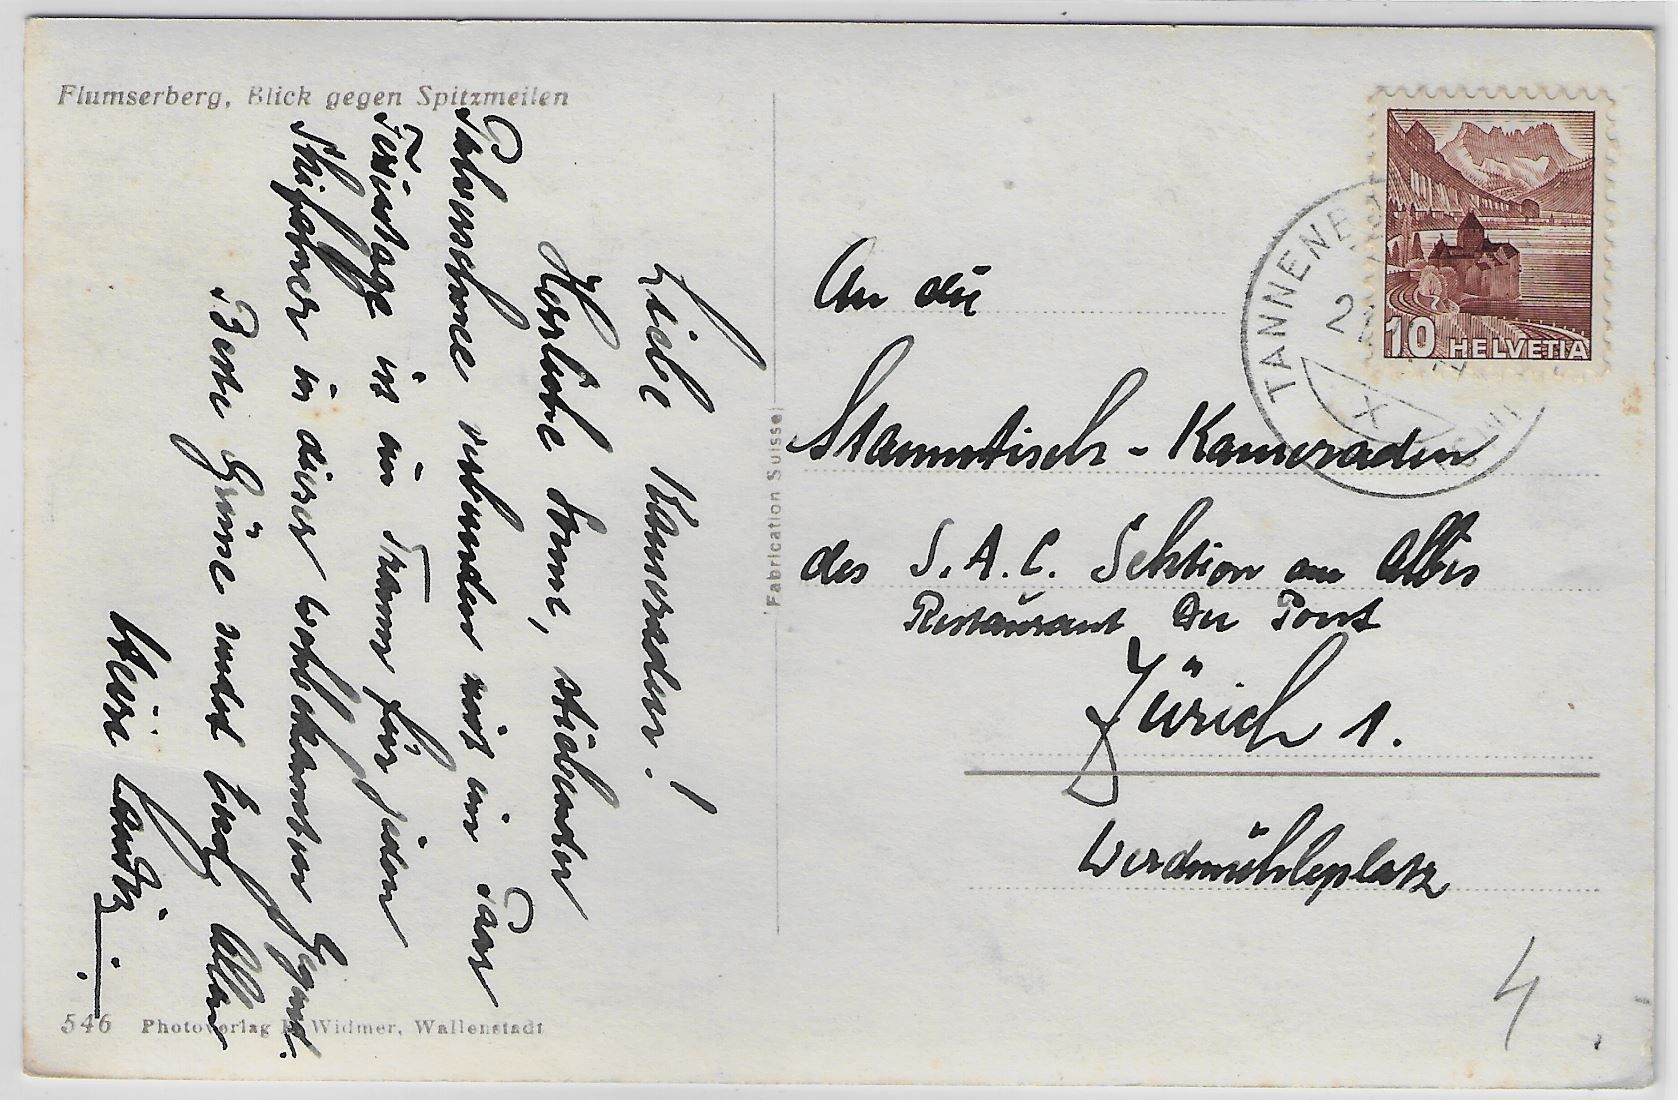 Flumserberg, Blick gegen Spitzmeilen
Liebe Kameraden!
Herrliche Sonne, stiebender
Pulverschnee verbunden mit ein Paar
Ferientage ist ein Traum für jeden
Skifahrer in dieser wohlbekannten Gegend.
Beste Grüsse sendet Euch Allen
Heiri Landtz
546 Photoverlag Widmer, Wallenstadt
Fabrication Suisse
An die
Stammtisch-Kameraden
des S.A.C. Sektion am Albis
Restaurant Du Pont
Zürich 1.
Werdmühleplatz
TANNENB
10 HELVETIA
X
4